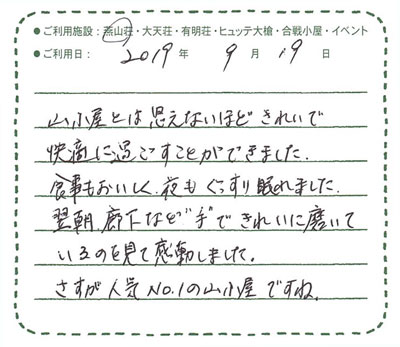 ●ご利用施設：燕山荘・大天荘・有明荘・ヒュッテ大槍・合戦小屋・イベント
●ご利用日： 2019 年 9 月 19 日
山小屋とは思えないほど きれいで
快適に過ごすことができました.
食事もおいしく、夜も ぐっすり 眠れました.
翌朝、廊下など"手"で きれいに磨いて
いるのを見て感動しました。
さすが 人気 No.1の山小屋 ですね.